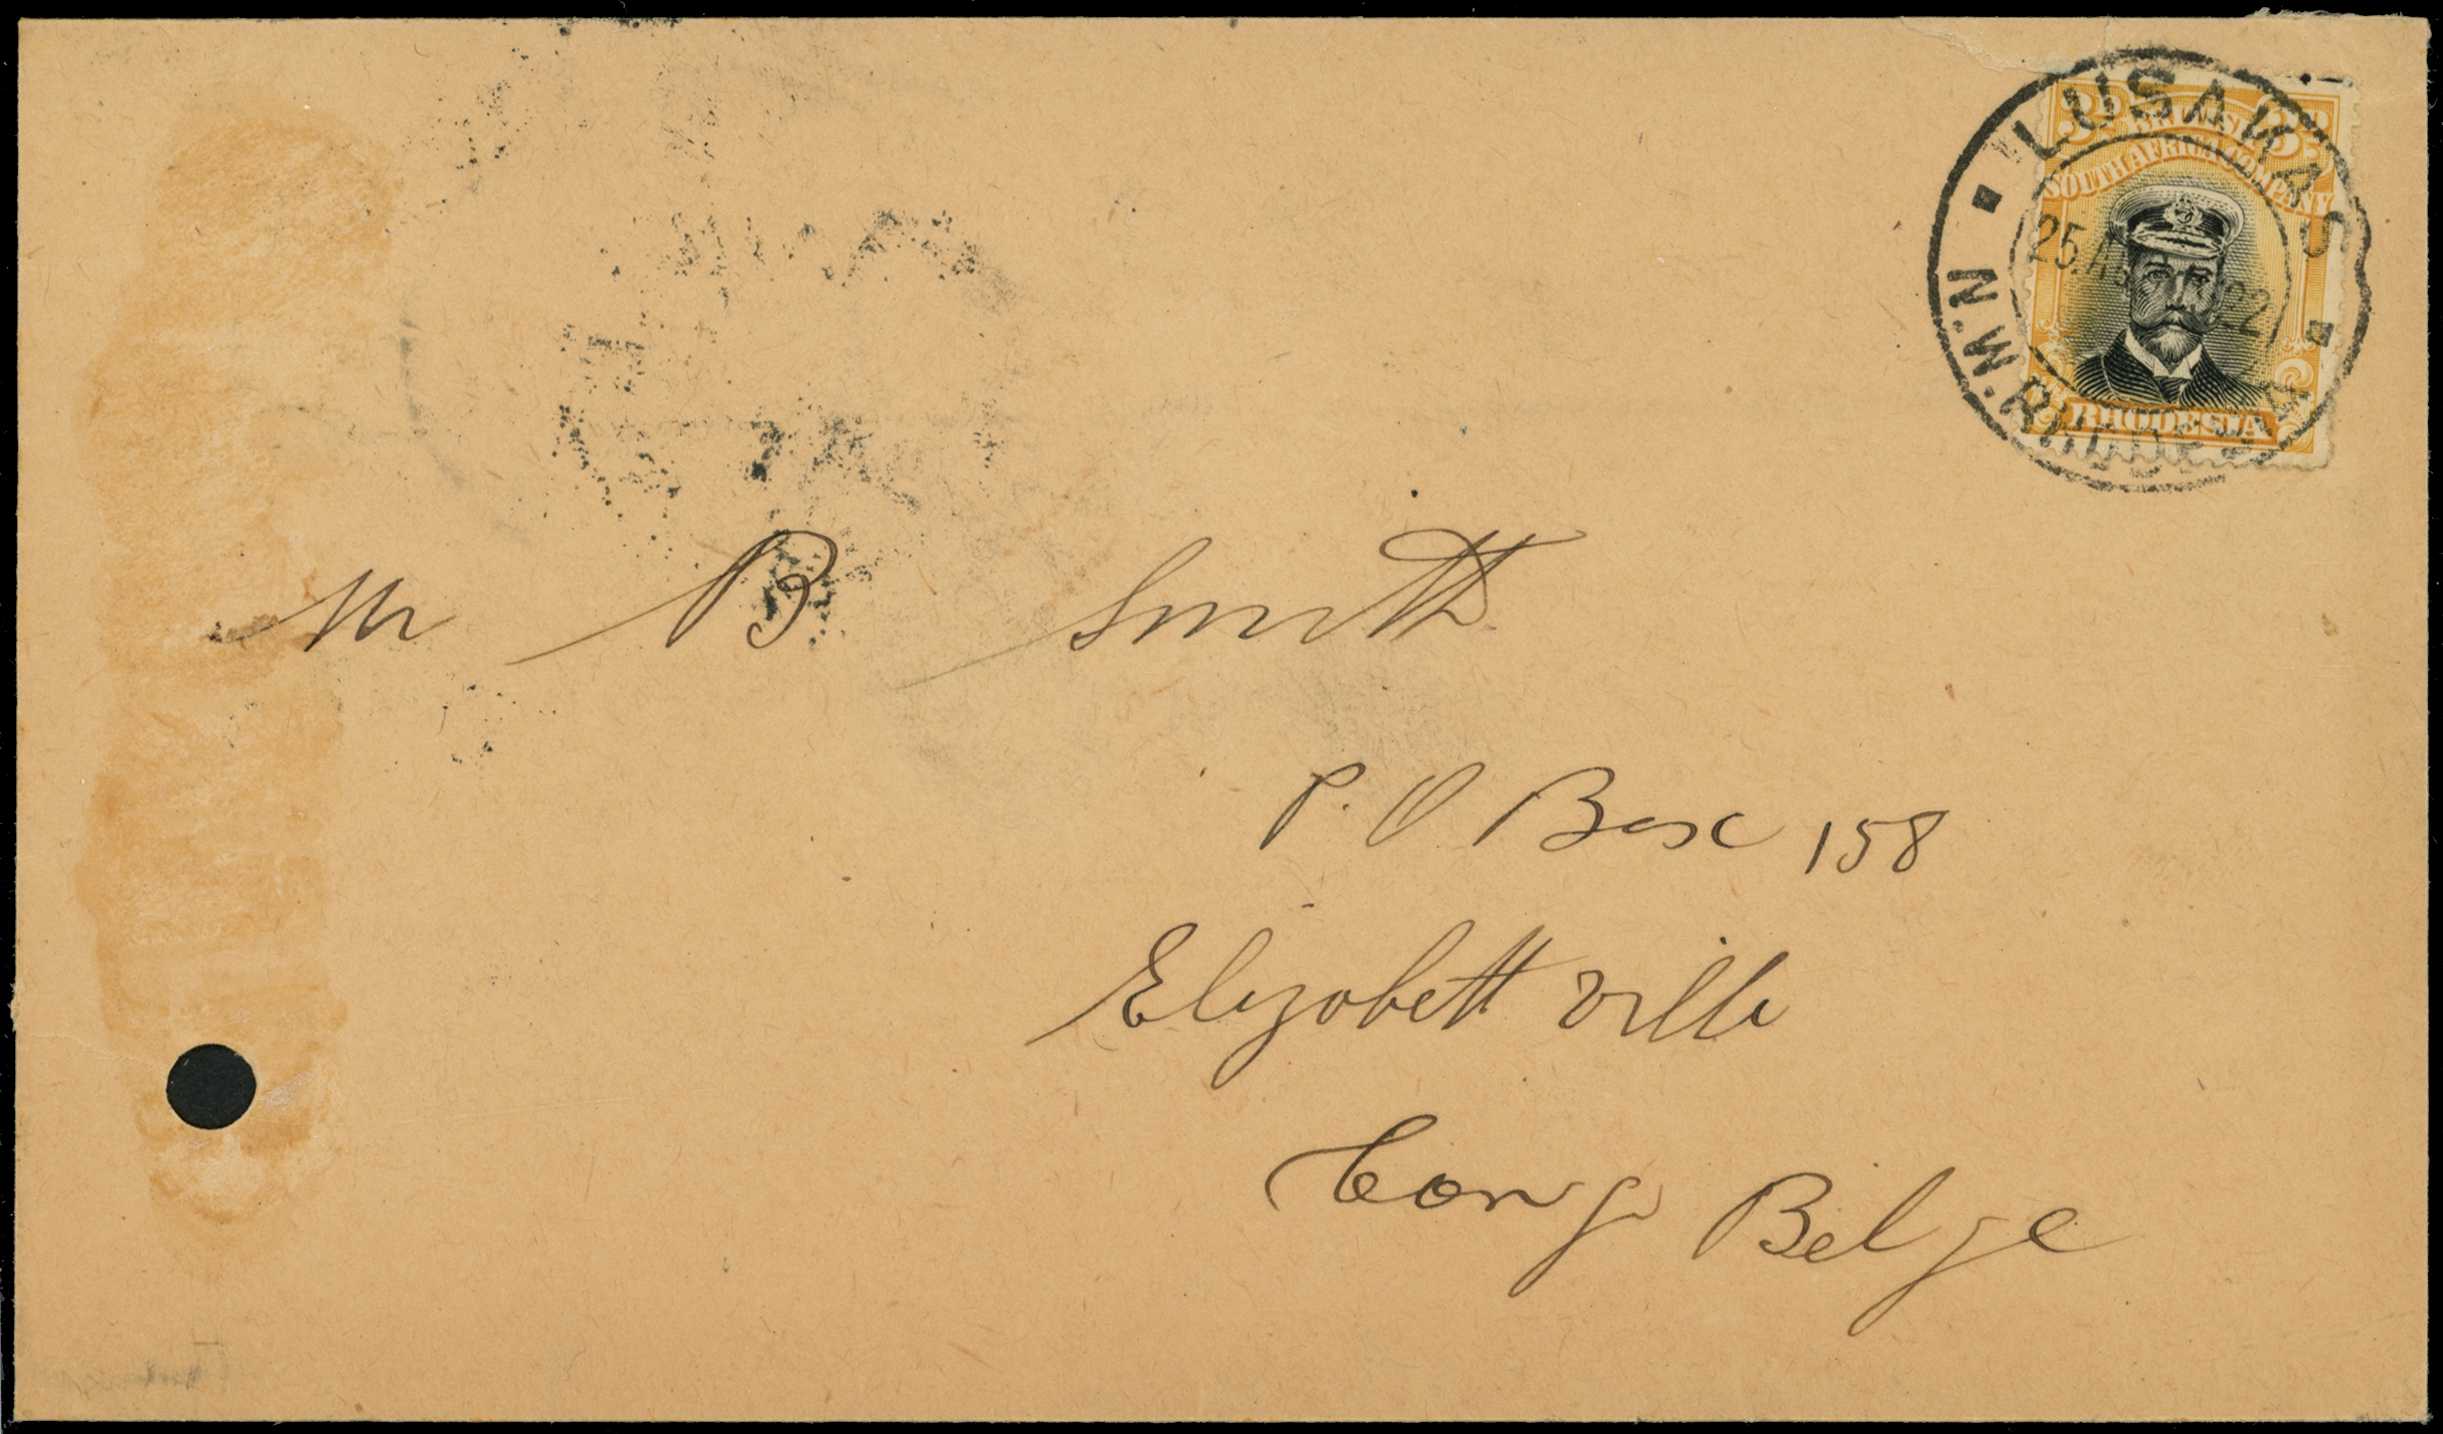 LUSAKAS
25. 22
N.W. RHODESIA
3D 3D
BRITISH
SOUTH AFRICA COMPANY
RHODESIA
Mr B. Smith
P. O Box 158
Elizabeth ville
Congo Belge